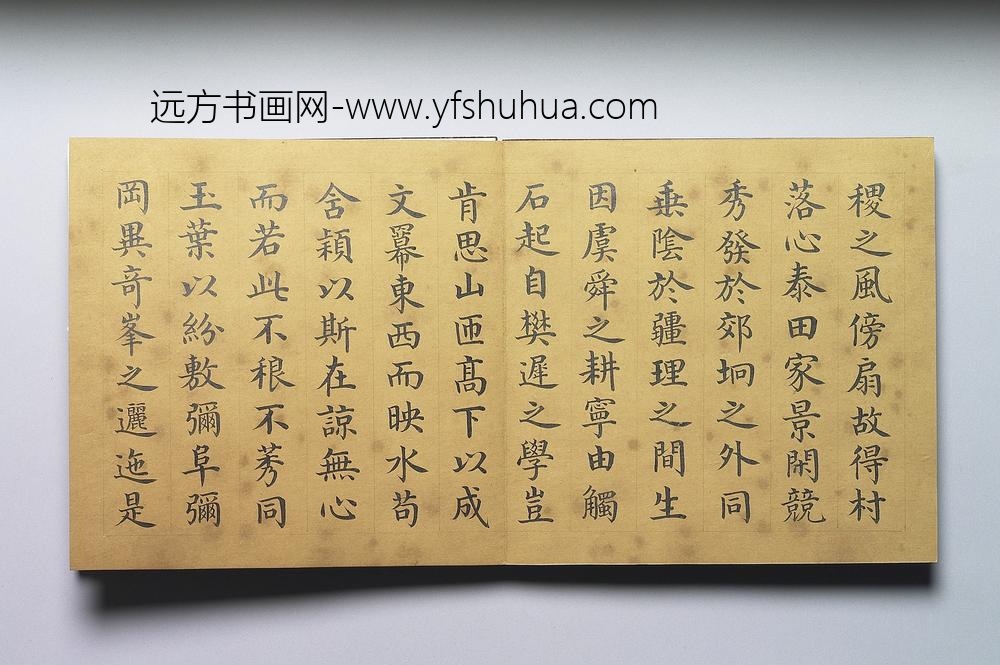 远方书画网-www.yfshuhua.com
稷之風傍扇故得村
落心泰田家景閑競
秀發於郊坰之外同
乗陰於疆理之間生
因虞舜之耕寧由觸
石起自樊遲之學豈
肯思山匝髙下以成
文冪東西而映水苟
含穎以斯在諒無心
而若此不稂不莠同
玉葉以紛敷彌阜彌
岡異竒峯之邐迤是